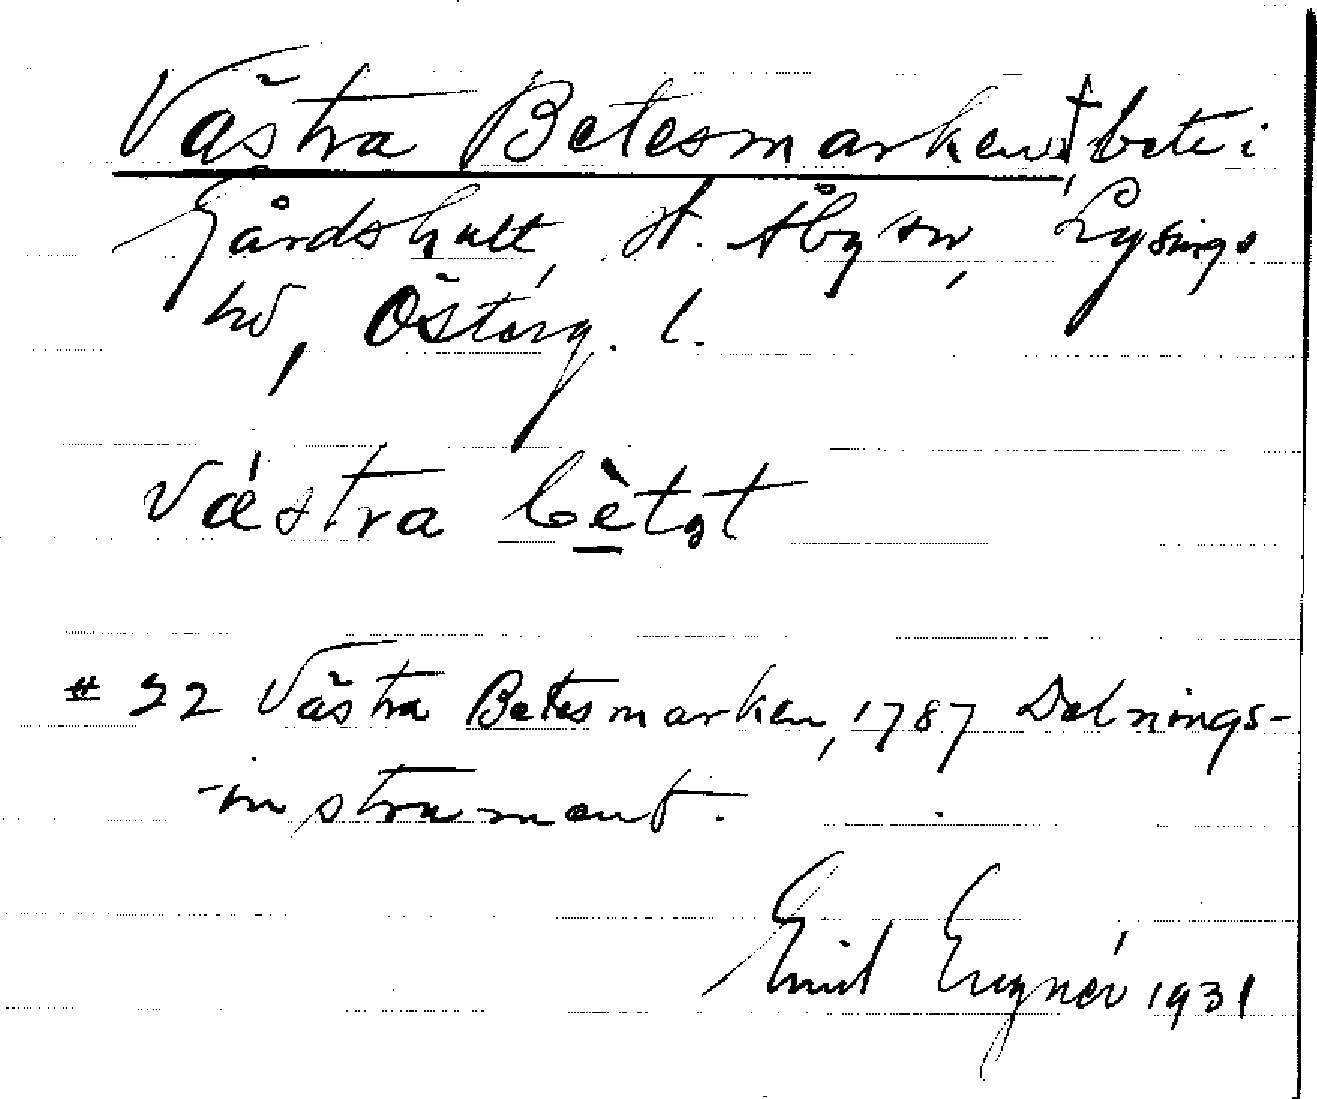 Västra Betesmarken † bete i
Gårdshult, St. Åby sn, Lysings
hd, Österg. l.
Västra bètət
# 22 Västra Betesmarken, 1787 Delnings-
-instrument.
Emil 1931